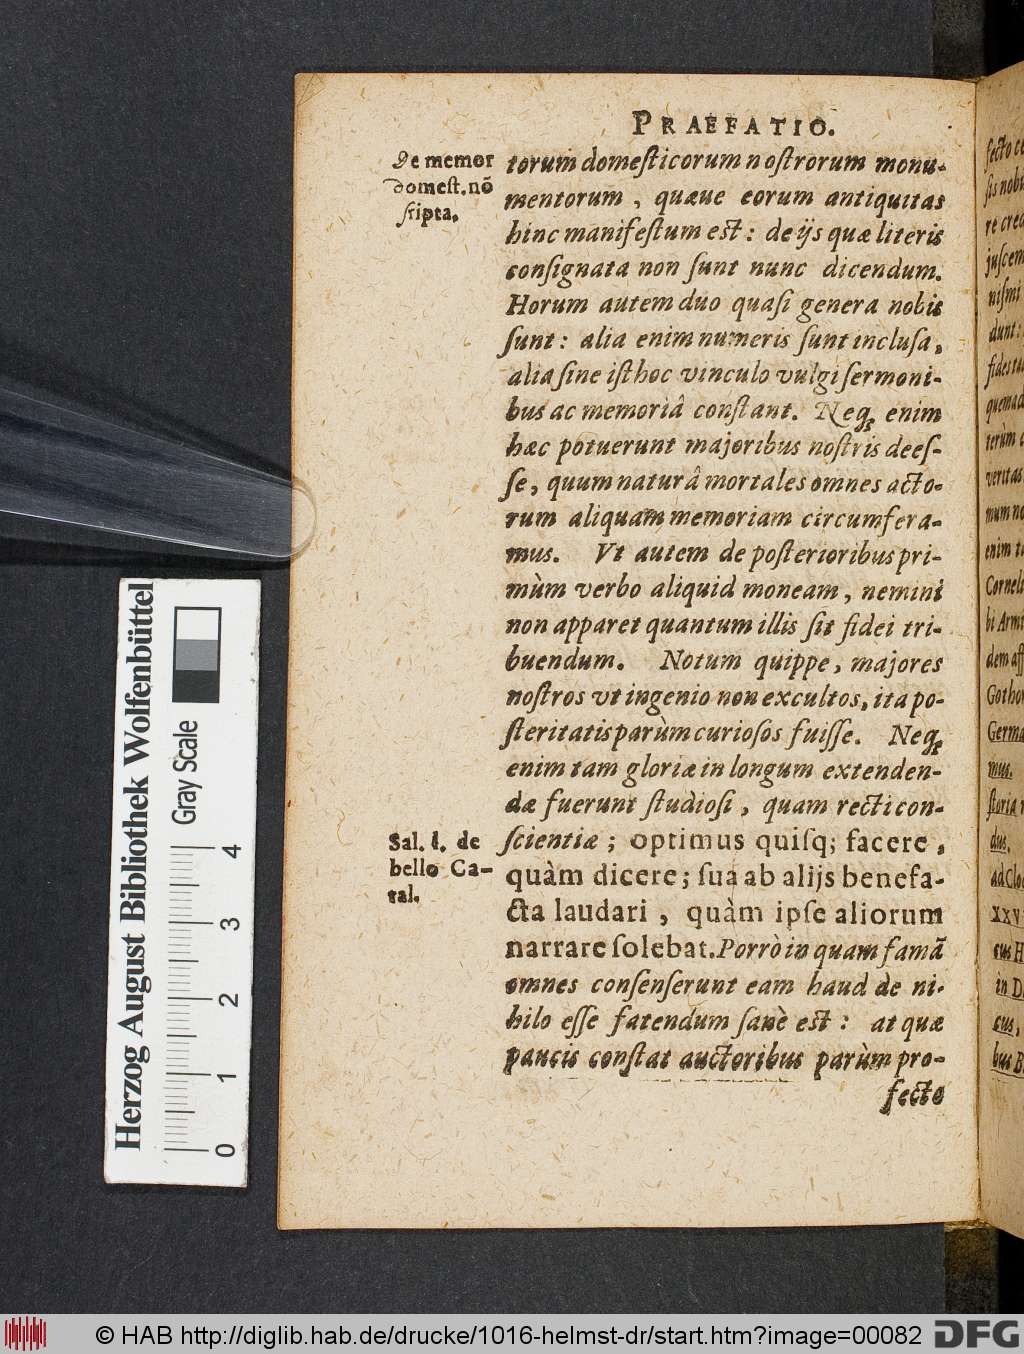 PRAEFATIO.
De memor
domest. nō
scripta.
torum domeſticorum noſtrorum monu-
mentorum, quæue eorum antiquitas
hinc manifeſtum eſt: de ijs quæ literis
conſignata non ſunt nunc dicendum.
Horum autem duo quaſi genera nobis
ſunt: alia enim numeris ſunt incluſa,
alia ſine iſthoc vinculo vulgi ſermoni-
bus ac memoriâ conſtant. Neq; enim
hæc potuerunt majoribus noſtris deeſ-
ſe, quum naturâ mortales omnes acto-
rum aliquam memoriam circumfera-
mus. Vt autem de poſterioribus pri-
mùm verbo aliquid moneam, nemini
non apparet quantum illis ſit fidei tri-
buendum. Notum quippe, majores
noſtros vt ingenio non excultos, ita po-
ſteritatis parùm curioſos fuiſſe. Neq;
enim tam gloriæ in longum extenden-
dæ fuerunt ſtudioſi, quam recti con-
Sal. l. de
bello Ca-
tal.
ſcientiæ; optimus quiſq; facere,
quàm dicere; ſua ab alijs benefa-
cta laudari, quàm ipſe aliorum
narrare ſolebat. Porrò in quam famā
omnes conſenſerunt eam haud de ni-
hilo eſſe fatendum ſanè eſt: at quæ
paucis conſtat auctoribus parùm pro-
fecto
fecto
ſis nobi
re cred
juſcem
niſmi
dunt:
fides
quemad
terùm
veritas
mum no
enim
Corneli
bi Armi
dem aff
Gotho
Germa
mus.
ſtoria
dus.
ad Clo
XXV
cus H
in D
cus,
bus B
Herzog August Bibliothek Wolfenbüttel
Gray Scale
0 1 2 3 4
© HAB http://diglib.hab.de/drucke/1016-helmst-dr/start.htm?image=00082
DFG